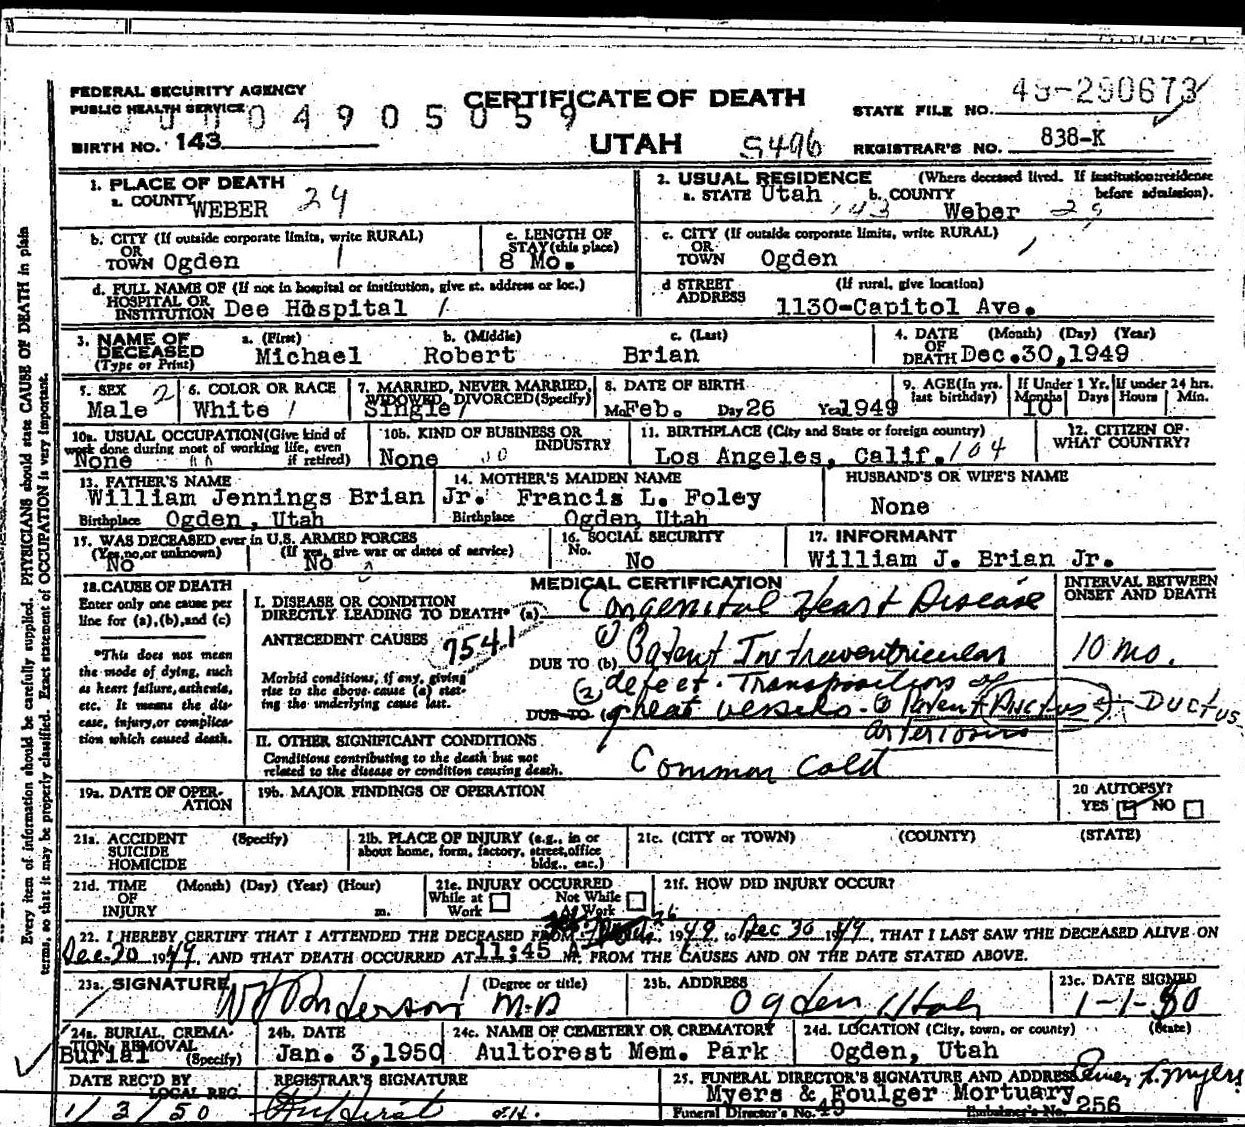 FEDERAL SECURITY AGENCY
PUBLIC HEALTH SERVICE
CERTIFICATE OF DEATH
UTAH
0 4 9 0 5 0 5 9
BIRTH NO. 143
S496
STATE FILE NO. 49-290673
REGISTRAR'S NO. 838-K
1. PLACE OF DEATH
a. COUNTY WEBER 29
2. USUAL RESIDENCE (Where deceased lived. If institution: residence before admission).
a. STATE Utah b. COUNTY Weber 29
143
b. CITY (If outside corporate limits, write RURAL)
OR
TOWN Ogden 1
c. LENGTH OF
STAY (this place)
8 Mo.
c. CITY (If outside corporate limits, write RURAL)
OR
TOWN Ogden
d. FULL NAME OF (If not in hospital or institution, give st. address or loc.)
HOSPITAL OR
INSTITUTION Dee Hospital 1
d STREET (If rural, give location)
ADDRESS 1130-Capitol Ave.
3. NAME OF DECEASED (Type or Print)
a. (First) b. (Middle) c. (Last)
Michael Robert Brian
4. DATE (Month) (Day) (Year)
OF
DEATH Dec.30,1949
5. SEX 2
Male
6. COLOR OR RACE
White 1
7. MARRIED, NEVER MARRIED, WIDOWED, DIVORCED (Specify)
Single 1
8. DATE OF BIRTH
Mo Feb. Day 26 Year 1949
9. AGE (In yrs. last birthday)
If Under 1 Yr. If under 24 hrs.
Months Days Hours Min.
10
10a. USUAL OCCUPATION (Give kind of work done during most of working life, even if retired)
None
10b. KIND OF BUSINESS OR INDUSTRY
None
11. BIRTHPLACE (City and State or foreign country)
Los Angeles, Calif. 104
12. CITIZEN OF WHAT COUNTRY?
13. FATHER'S NAME
William Jennings Brian Jr.
Birthplace Ogden, Utah
14. MOTHER'S MAIDEN NAME
Francis L. Foley
Birthplace Ogden, Utah
HUSBAND'S OR WIFE'S NAME
None
15. WAS DECEASED ever in U.S. ARMED FORCES
(Yes, no, or unknown) (If yes, give war or dates of service)
No No
16. SOCIAL SECURITY
No. No
17. INFORMANT
William J. Brian Jr.
18. CAUSE OF DEATH
Enter only one cause per line for (a), (b), and (c)
*This does not mean the mode of dying, such as heart failure, asthenia, etc. It means the disease, injury, or complication which caused death.
MEDICAL CERTIFICATION
INTERVAL BETWEEN ONSET AND DEATH
I. DISEASE OR CONDITION
DIRECTLY LEADING TO DEATH* (a) Congenital Heart Disease
ANTECEDENT CAUSES 7541
Morbid conditions, if any, giving rise to the above cause (a) stating the underlying cause last.
DUE TO (b) (1) Patent Intraventricular
10 mo.
(2) defect. Transposition of
DUE TO (c) great vessels. (3) Patent Ductus - DUCTUS
arteriosus
II. OTHER SIGNIFICANT CONDITIONS
Conditions contributing to the death but not related to the disease or condition causing death.
Common cold
19a. DATE OF OPERATION
19b. MAJOR FINDINGS OF OPERATION
20 AUTOPSY?
YES NO
21a. ACCIDENT (Specify)
SUICIDE
HOMICIDE
21b. PLACE OF INJURY (e.g., in or about home, form, factory, street, office bldg., eac.)
21c. (CITY or TOWN) (COUNTY) (STATE)
21d. TIME (Month) (Day) (Year) (Hour)
OF
INJURY m.
21e. INJURY OCCURRED
While at Work Not While At Work
21f. HOW DID INJURY OCCUR?
22. I HEREBY CERTIFY THAT I ATTENDED THE DECEASED FROM 26 1949, to Dec 30 1949, THAT I LAST SAW THE DECEASED ALIVE ON
Dec. 30 1949, AND THAT DEATH OCCURRED AT 11:45 M. FROM THE CAUSES AND ON THE DATE STATED ABOVE.
23a. SIGNATURE (Degree or title)
M.D
23b. ADDRESS
Ogden, Utah
23c. DATE SIGNED
1-1-50
24a. BURIAL, CREMATION, REMOVAL (Specify)
Burial
24b. DATE
Jan. 3,1950
24c. NAME OF CEMETERY OR CREMATORY
Aultorest Mem. Park
24d. LOCATION (City, town, or county) (State)
Ogden, Utah
DATE REC'D BY LOCAL REG.
1/3/50
REGISTRAR'S SIGNATURE
25. FUNERAL DIRECTOR'S SIGNATURE AND ADDRESS
Myers & Foulger Mortuary
Funeral Director's No. 49 Embalmer's No. 256
Every item of information should be carefully supplied. PHYSICIANS should state CAUSE OF DEATH in plain
terms, so that it may be properly classified. Exact statement of OCCUPATION is very important.